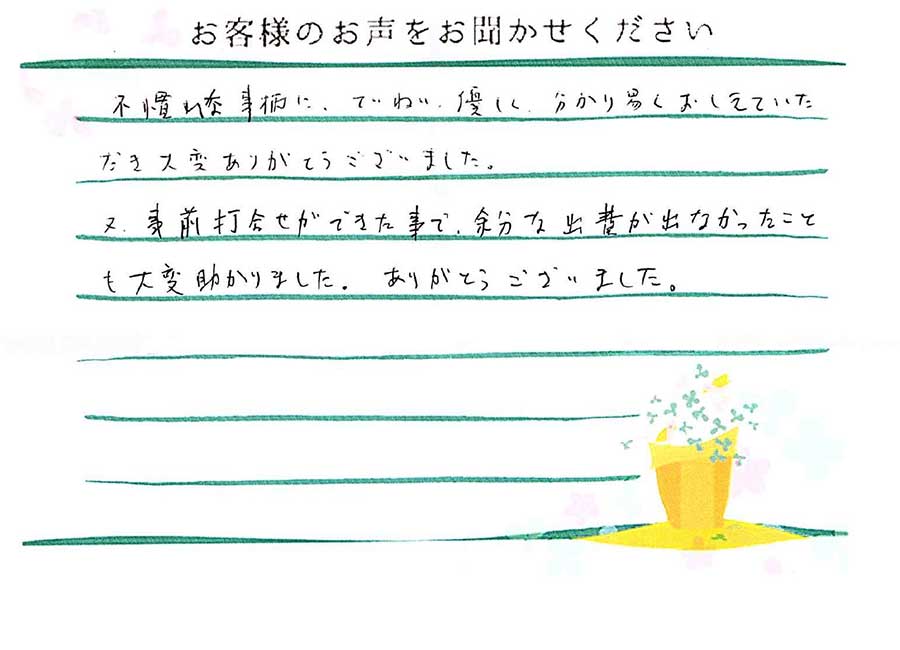 お客様のお声をお聞かせください
不慣れな事柄に、ていねい、優しく、分かり易くおしえていた
だき大変ありがとうございました。
又、事前打合せができた事で、余分な出費が出なかったこと
も大変助かりました。ありがとうございました。